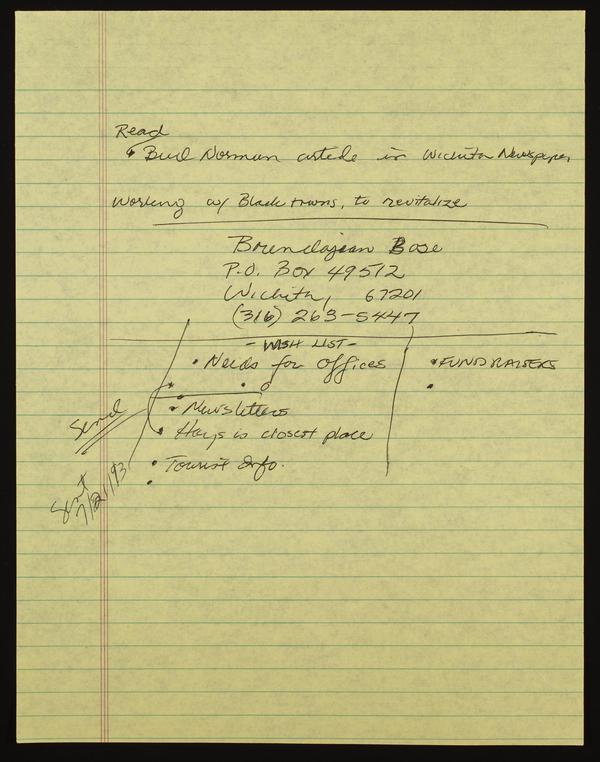 Read
• Bud Norman article in Wichita Newspaper
Working w/ Black towns, to revitalize
Brendajean Bose
P.O. Box 49512
Wichita, 67201
(316) 263-5447
- WISH LIST -
• Needs for offices
• FUNDRAISERS
• Newsletters
• Hays is closest place
• Tourist Info.
Send
Sent
7/21/93